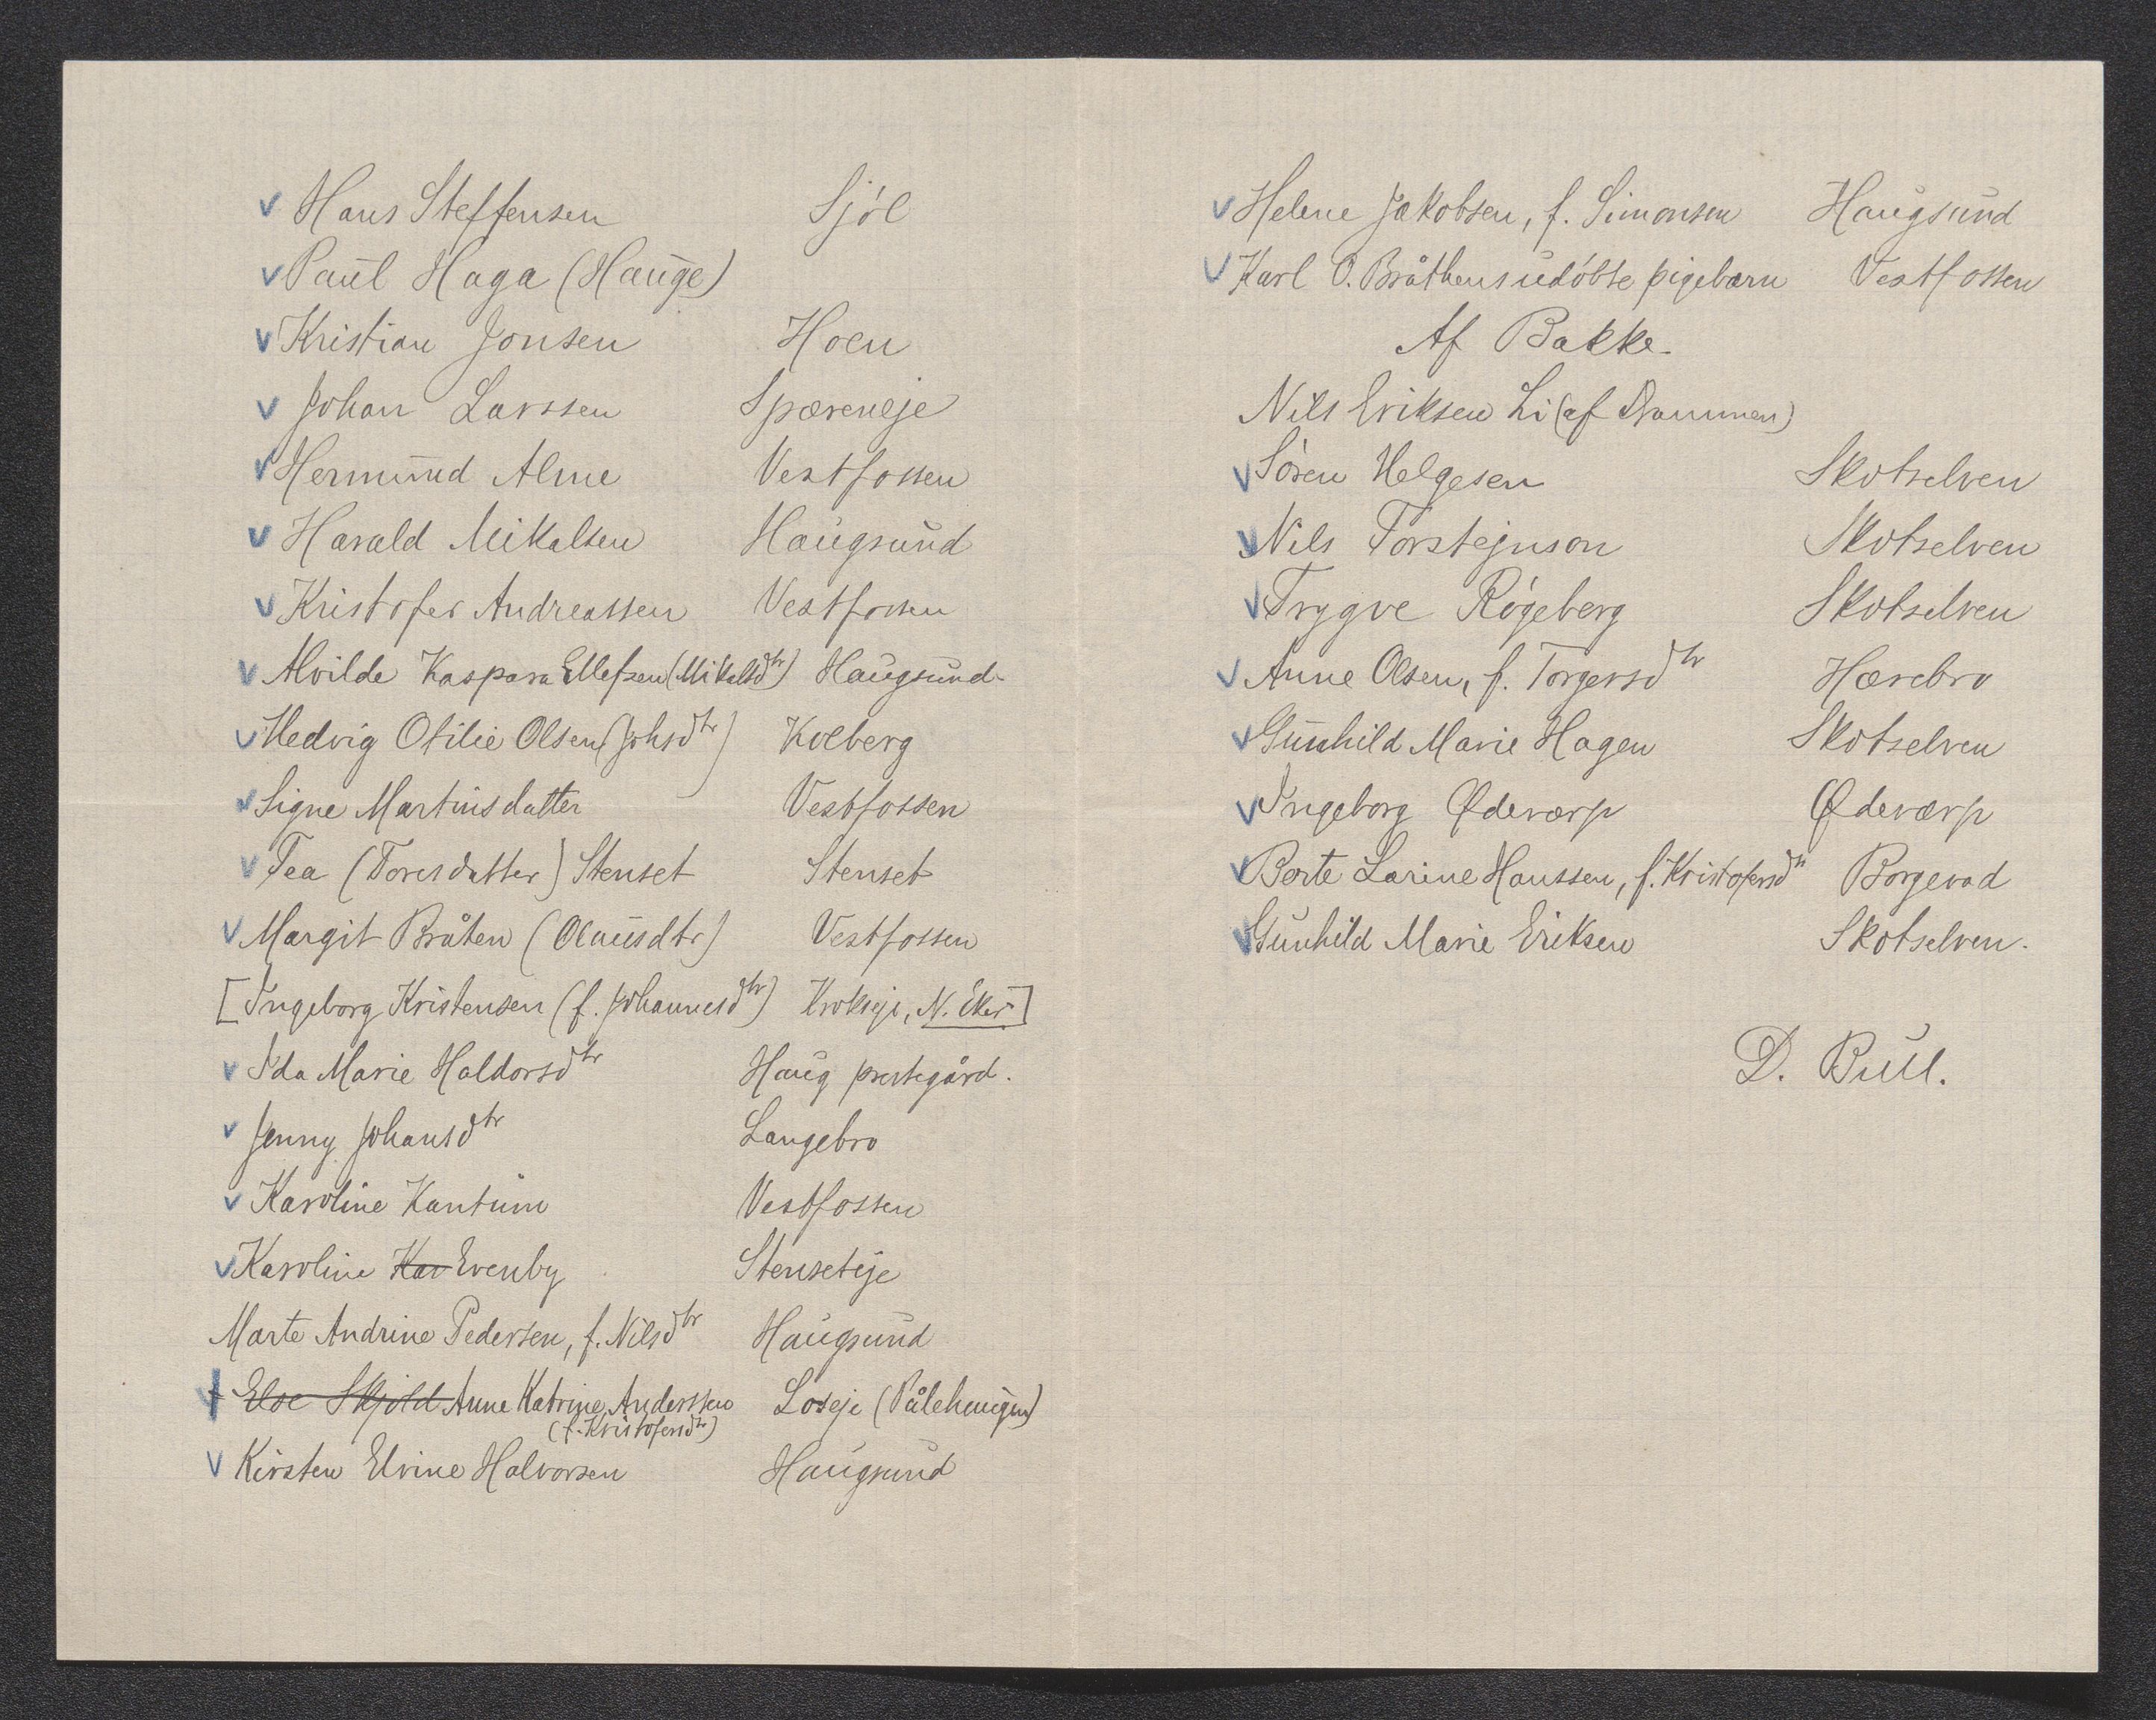 v Hans Steffensen Sjöl
v Paul Haga (Hauge)
v Kristian Jonsen Hoen
v Johan Larssen Spæreneje
v Hermund Alme Vestfossen
v Harald Mikalsen Haugsund
v Kristofer Andreassen Vestfossen
v Alvilde Kaspara Ellefsen (Mikalsdtr) Haugsund
v Hedvig Otilie Olsen (Johsdtr) Kolberg
v Signe Martinsdatter Vestfossen
v Tea (Toresdatter) Stenset Stenset
v Margit Bråten (Olausdtr) Vestfossen
[Ingeborg Kristensen (f. Johannesdtr) Krokseje, N. Eker]
v Ida Marie Haldorsdtr Haug prestegård.
v Jenny Johansdtr Langebro
v Karoline Kantum Vestfossen
v Karoline Kar Evenby Stenseteje
Marte Andrine Pedersen, f. Nilsdtr Haugsund
v Else Skjold Anne Katrine Anderssen Loseje (Pålehaugen)
(f. Kristofersdtr)
v Kirsten Elvine Halvorsen Haugsund
v Helene Jakobsen, f. Simonsen Haugsund
v Karl O. Bråthens udöbte pigebarn Vestfossen
Af Bakke.
Nils Eriksen Li (af Drammen)
v Sören Helgesen Skotselven
v Nils Torstejnson Skotselven
v Trygve Rögeberg Skotselven
v Anne Olsen, f. Torgersdtr Hærebro
v Gunhild Marie Hagen Skotselven
v Ingeborg Ødeværp Ødeværp
v Berte Larine Hanssen, f. Kristofersdtr Borgevad
v Gunhild Marie Eriksen Skotselven.
D. Bull.